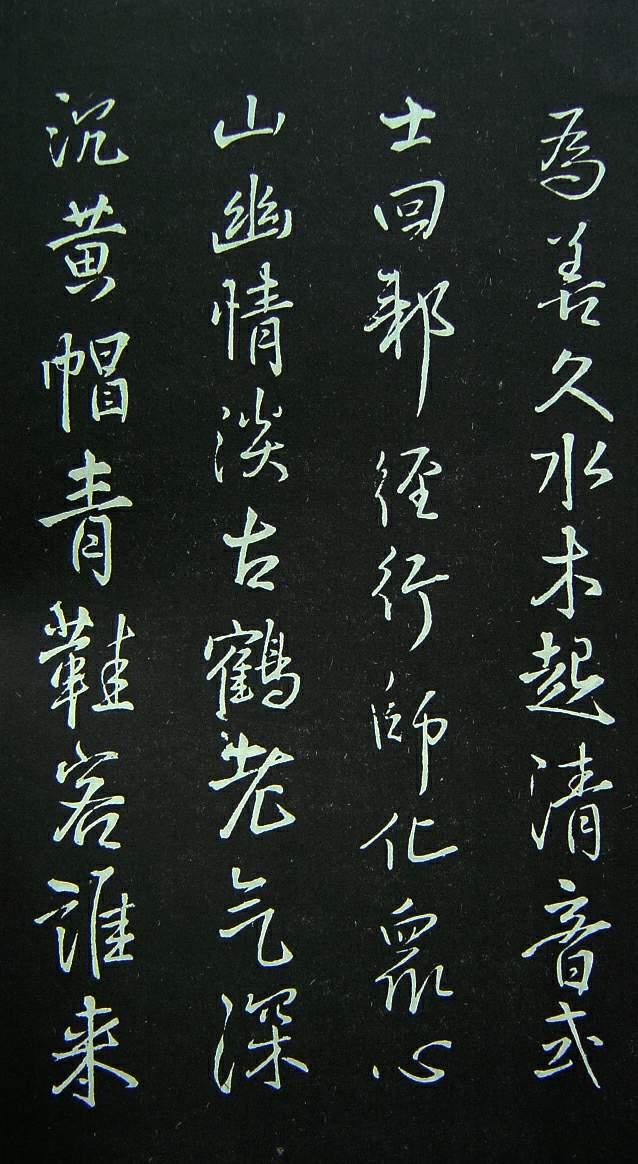 為善久水木起清音式
士回邪徑行師化眾心
山幽情淡古鶴老气深
沉黄帽青鞋客誰来